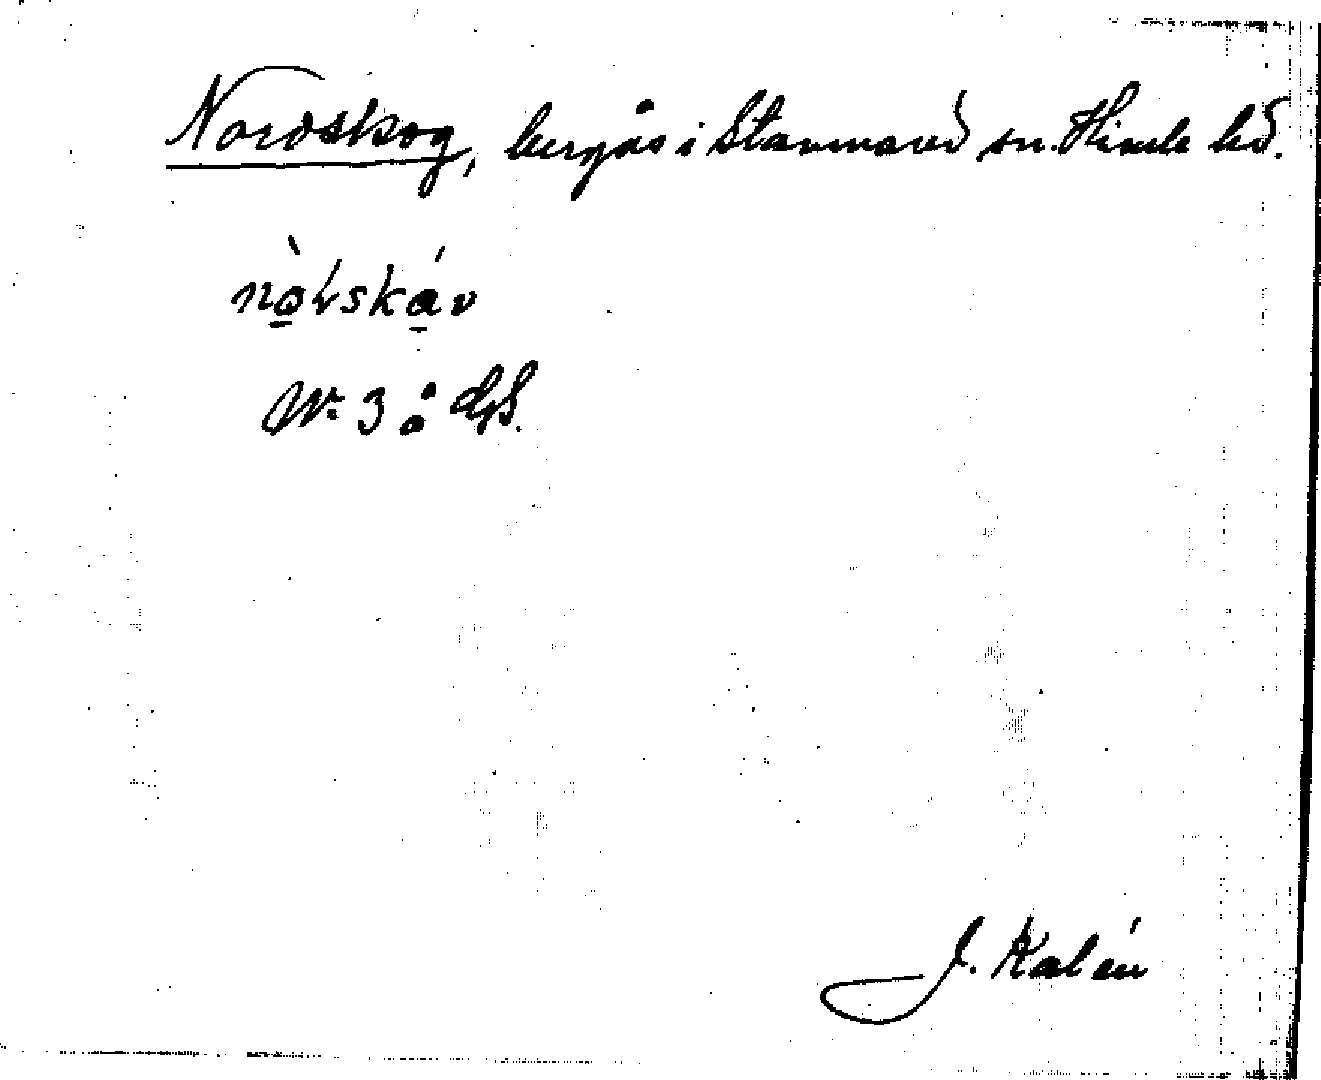 Nordskog, bergås i Stamnared sn. Himle hd.
nò̱tská̱v
W. 3 å GS.
J. Kalén